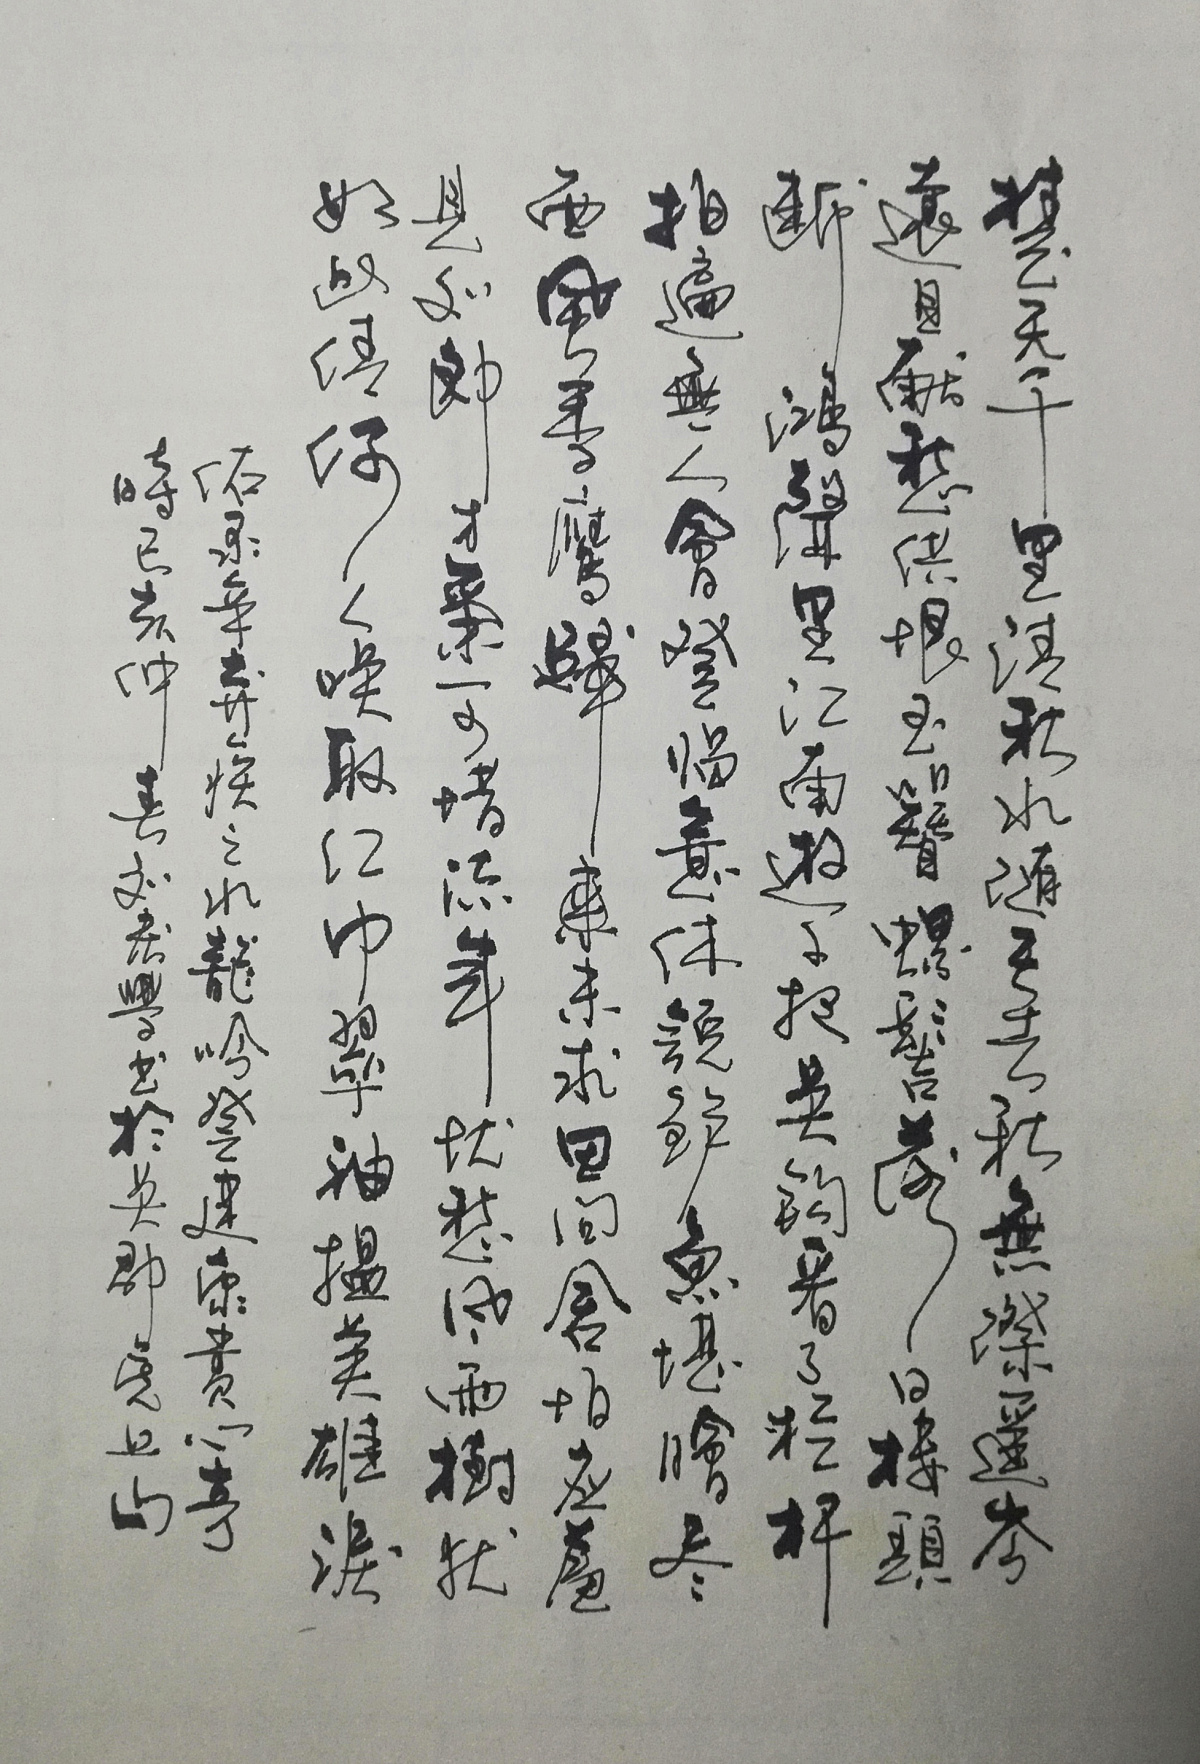 楚天千里清秋水隨天去秋無際遥岑
遠目獻愁供恨玉簪螺髻落日樓頭
断鴻聲里江南遊子把吴鈎看了栏杆
拍遍無人會登临意休說鲈魚堪膾尽
西風季鷹歸來未求田问舍怕应羞
見刘郎才氣可惜流年忧愁风雨樹犹
如此倩何人唤取红巾翠袖揾英雄淚
右录辛弃疾之水龍吟登建康賞心亭
時己亥仲春刘學书於吴郡虎丘